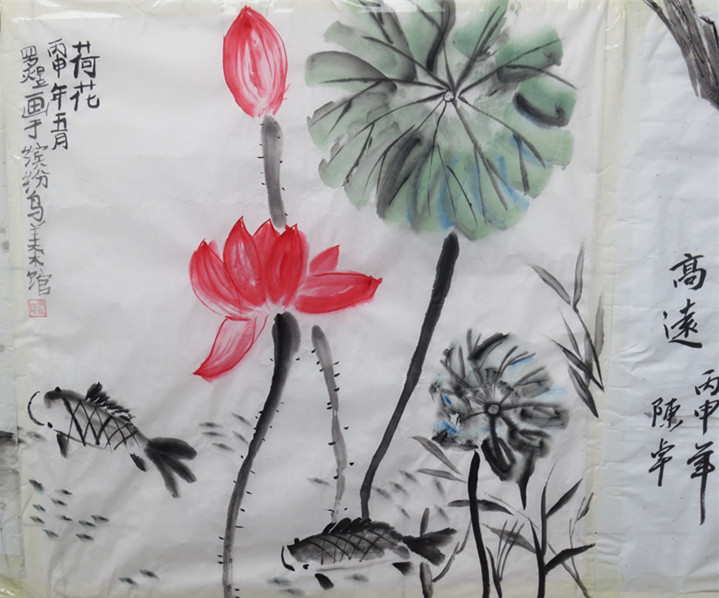 荷花
丙申年五月
罗煜画于缤纷鸟美术馆
高遠
丙申年
陳卓